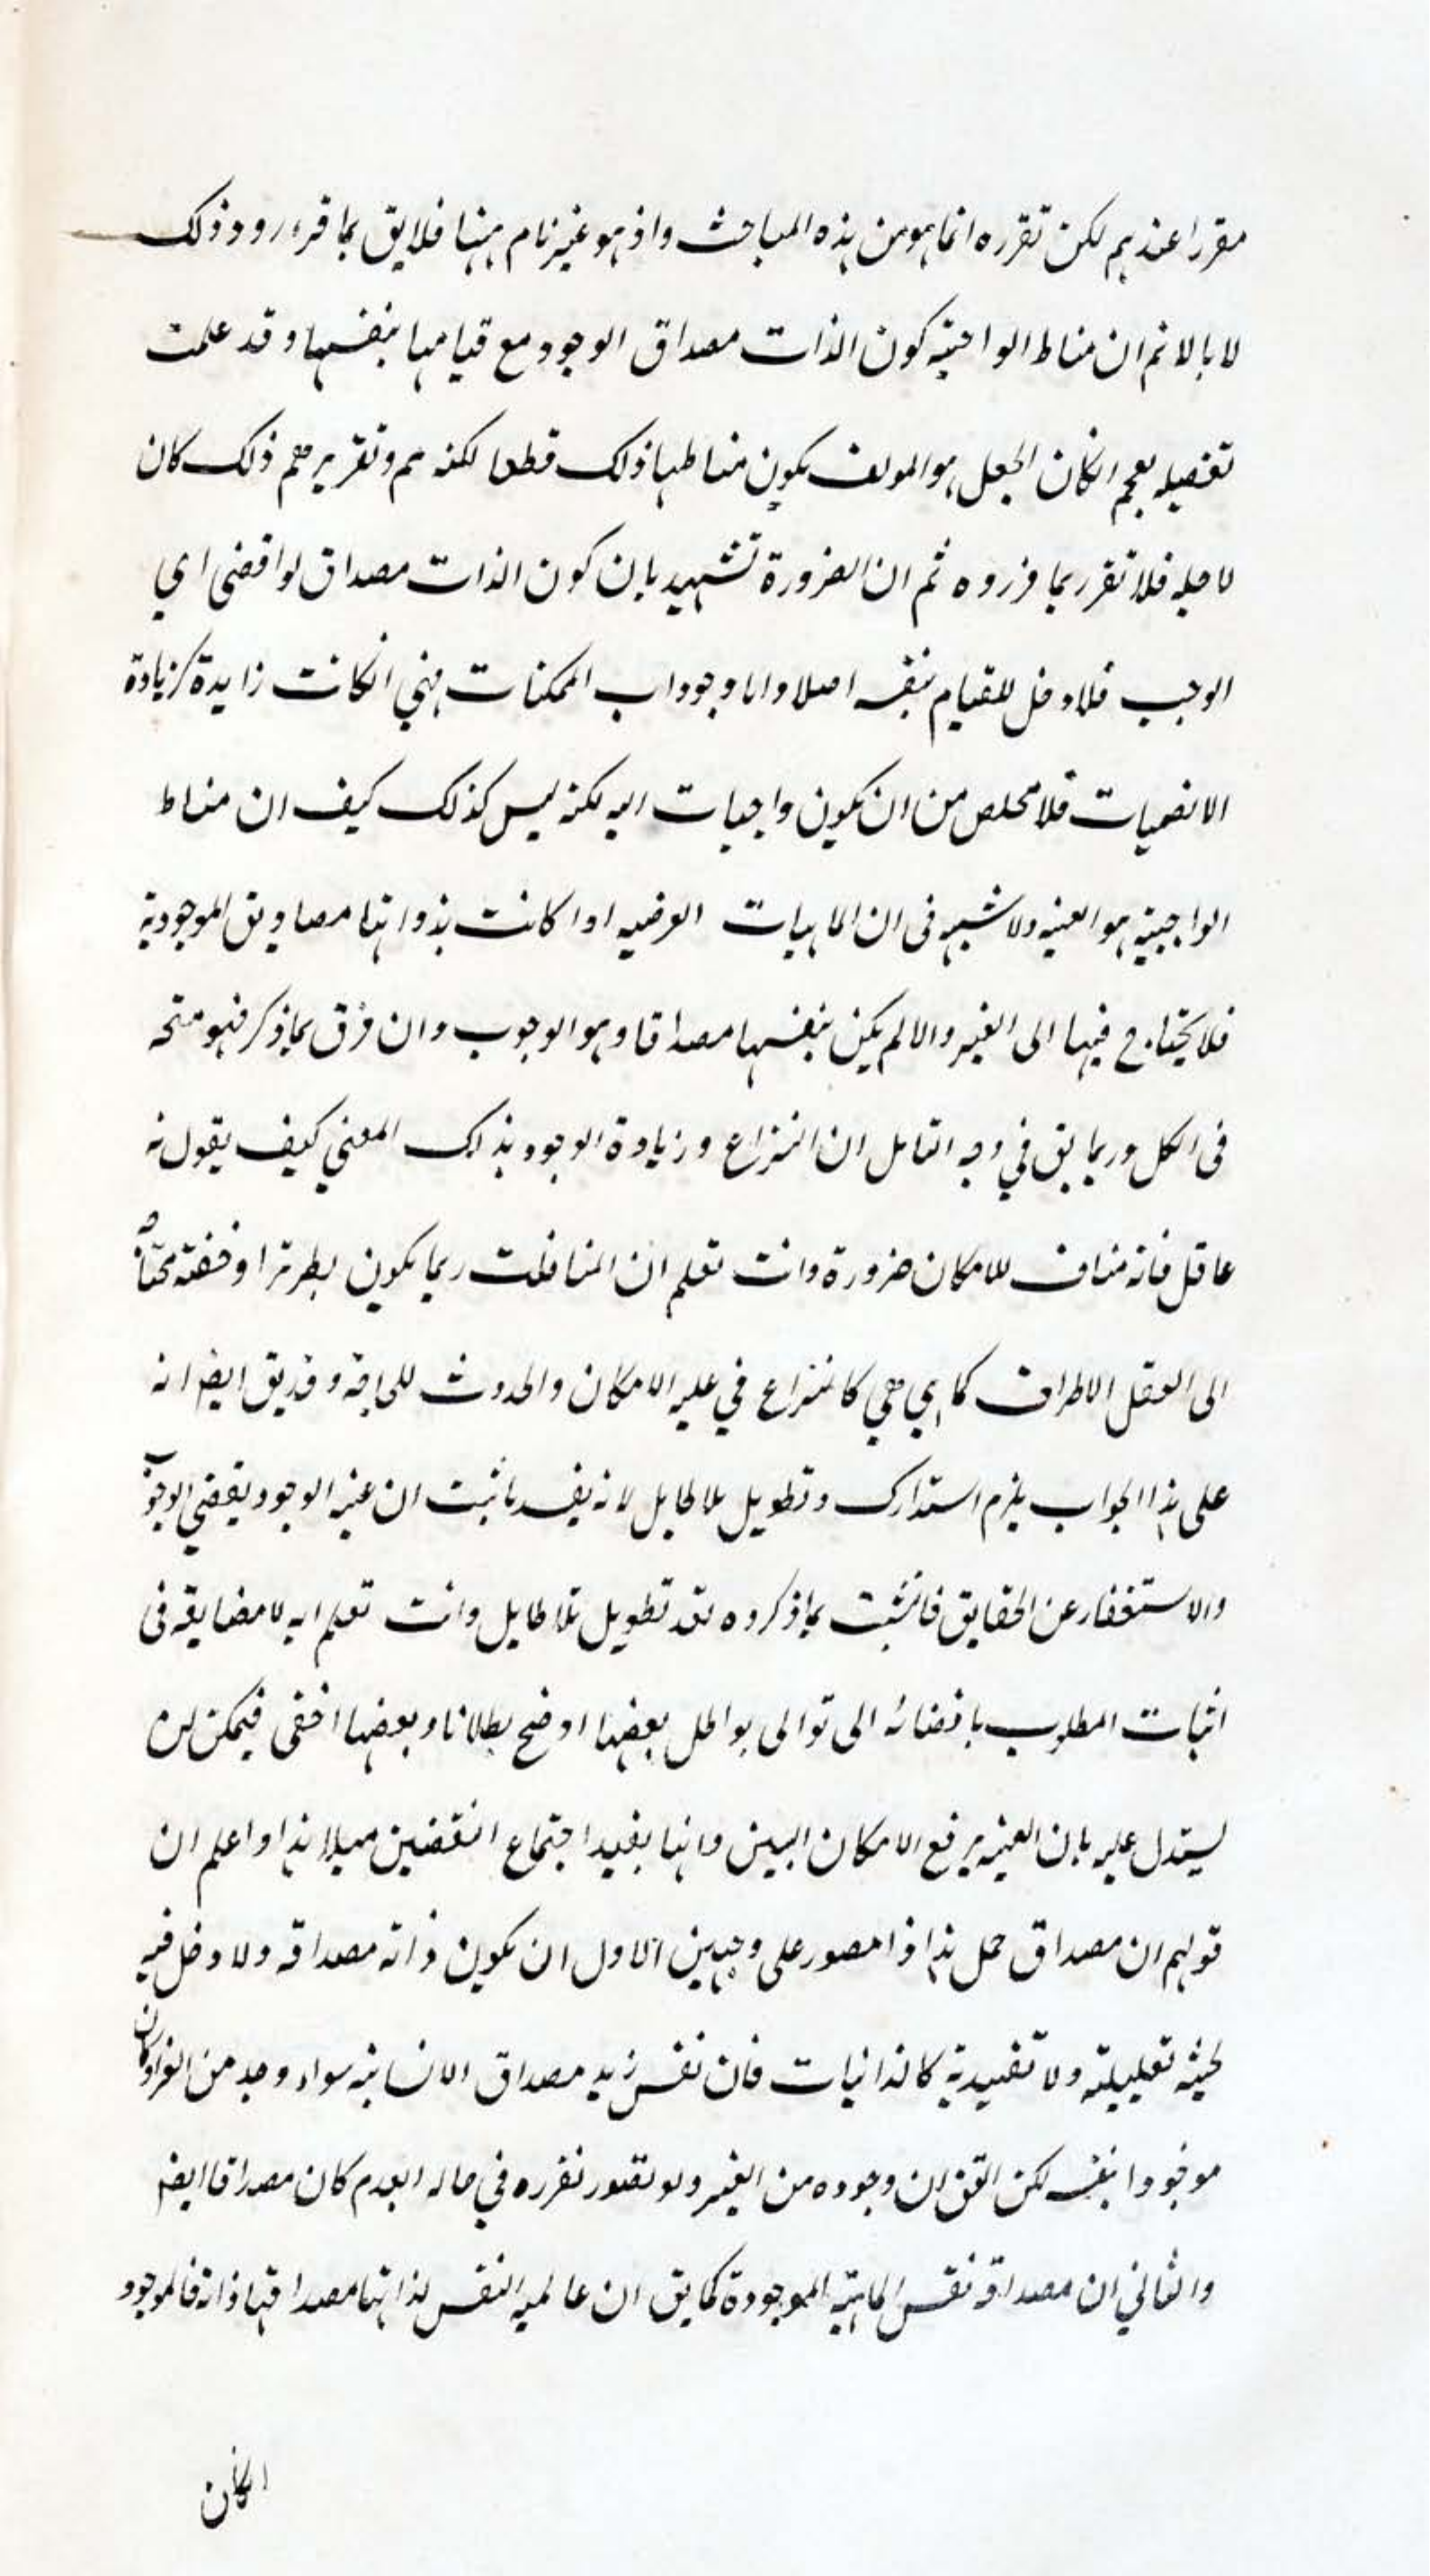 مقررا عندهم لكن تقرره انما هو من هذه المباحث واذ هو غير تام ههنا فلايق بما قرء رود ذلك
لا بالاثم ان مناط الواجبية كون الذات مصداق الوجود مع قيامها بنفسها وقد علمت
تفصيله بعم انكان الجعل هو المولف يكون مناطها ذلك قطعا لكنه مم وتقرير مم ذلك كان
لاجله فلا تقرر بما قرروه ثم ان الضرورة تشهد بان كون الذات مصداق لو اقضى اي
الوجب فلا دخل للقيام بنفسه اصلا واما وجوداب الممكنات فهي انكانت زايدة كزيادة
الانضميات فلا مخلص من ان يكون واجبات اليه لكنه ليس كذلك كيف ان مناط
الواجبية هو العنيه ولا شبهه فى ان الماهيات العرضيه اوا كانت بذواتها مصاديق الموجودية
فلا يحتاج فيها الى الغير والا لم يكن بنفسها مصداقا وهو الوجوب وان فرق بما ذكر فهو متحه
فى الكل وربما يق في وجه التامل ان النزاع وزيادة الوجود بذلك المعني كيف يقول به
عاقل فانه مناف للامكان ضرورة وانت تعلم ان المنافات ربما يكون بطرتها وخفته محتاجه
الى العقل الاطراف كما هي هي كالنزاع في عليه الامكان والحدوث للحاجه وقد يق ايضا انه
على هذا الجواب يلزم استدارك وتطويل بلا طايل لانه بعد ما ثبت ان عنيه الوجود يقضي الوجوب
والاستغفار عن الحقايق فانثبت بما ذكروه نقد تطويل بلا طايل وانت تعلم انه لا مضايقه فى
اثبات المطلوب بافضائه الى توالى بواطل بعضها اوضح بطلانا وبعضها اخفى فيمكن لن
يستدل عليه بان العنيه يرفع الامكان البين وانها يفيد اجتماع النقضين ميلا هذا واعلم ان
قولهم ان مصداق حمل هذا ذا مصور على وجهين الاول ان يكون ذاته مصداقه ولا دخل فيه
لحيثه تعليلية ولا تقييدية كالذاتيات فان نفس زيد مصداق الانسانيه سواء وجد من الغير او كان
موجودا بنفسه لكن اتفق ان وجوده من الغير ولو تصور نقرره في حاله العدم كان مصداقا ايضا
والثاني ان مصداقه نفس الماهية الموجودة كما يق ان عالميه النفس لذاتها مصداقها ذاته فالموجود
انكان